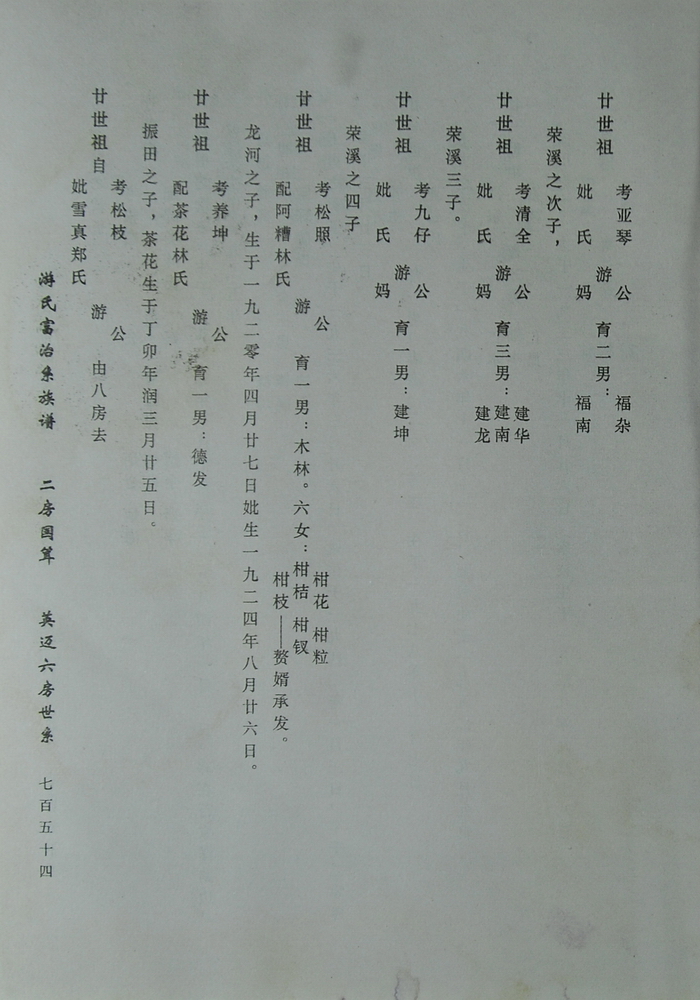 廿世祖 考亚琴 妣 氏 游 公 妈 育二男： 福杂 福南
荣溪之次子，
廿世祖 考清全 妣 氏 游 公 妈 育三男： 建华 建南 建龙
荣溪三子。
廿世祖 考九仔 妣 氏 游 公 妈 育一男：建坤
荣溪之四子
廿世祖 考松照 配阿糟林氏 游 公 育一男：木林。六女： 柑花 柑粒 柑桔 柑钗 柑枝——赘婿承发。
龙河之子，生于一九二零年四月廿七日妣生一九二四年八月廿六日。
廿世祖 考养坤 配茶花林氏 游 公 育一男：德发
振田之子，茶花生于丁卯年润三月廿五日。
廿世祖自 考松枝 妣雪真郑氏 游 公 由八房去
游氏富治系族谱 二房国茸 英迈六房世系 七百五十四